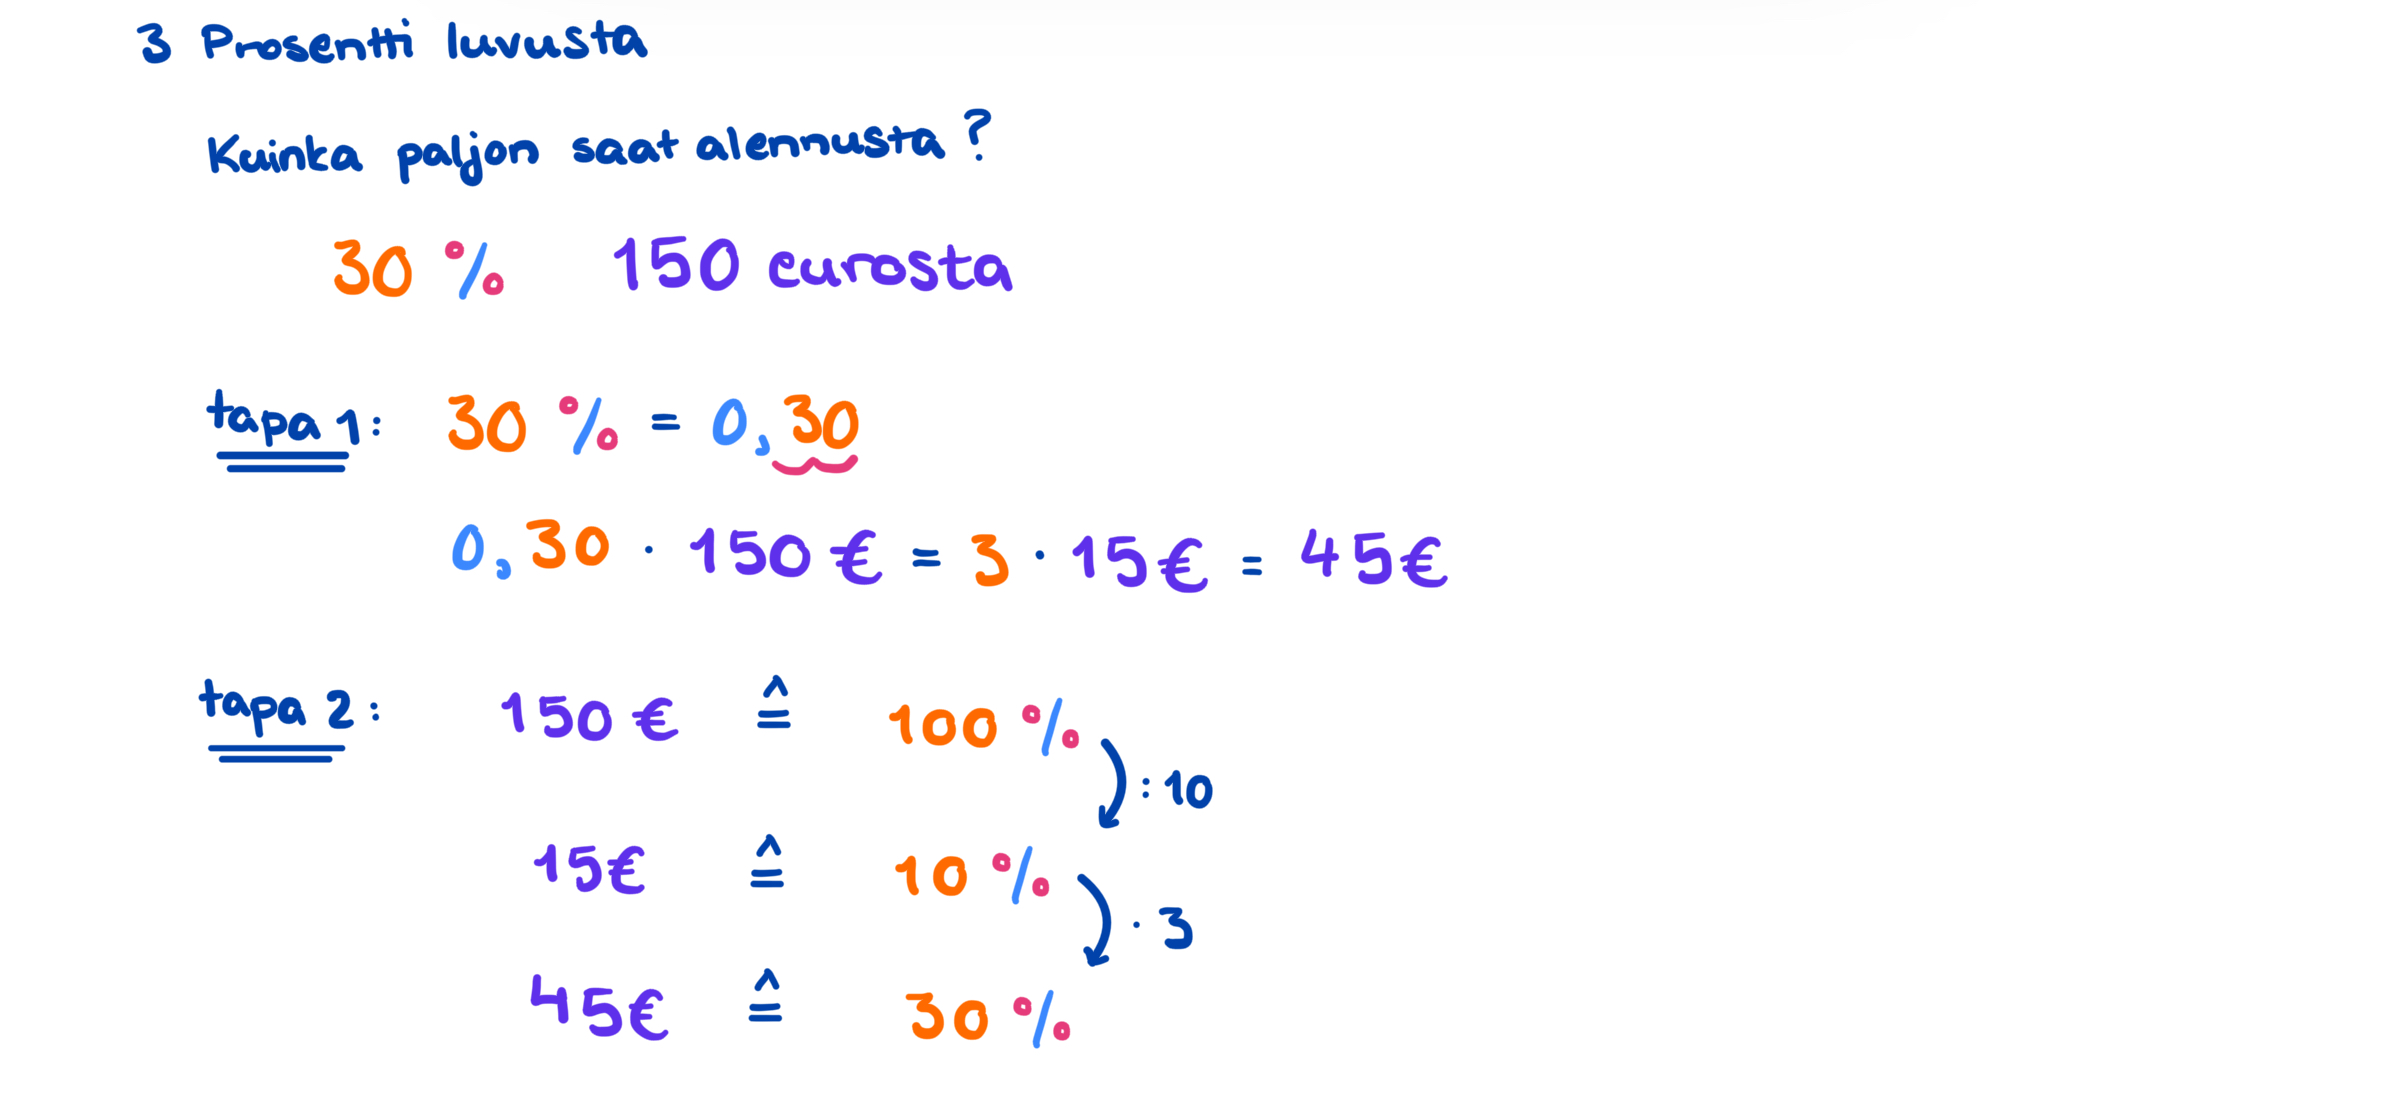 3 Prosentti luvusta
Kuinka paljon saat alennusta?
30 % 150 eurosta
tapa 1: 30 % = 0,30
0,30 · 150 € = 3 · 15 € = 45 €
tapa 2: 150 € ≙ 100 %
: 10
15 € ≙ 10 %
· 3
45 € ≙ 30 %